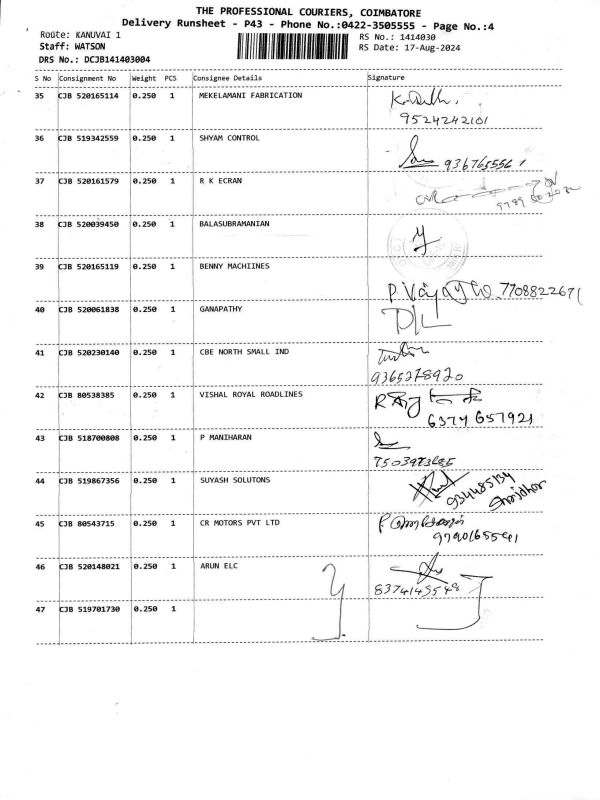 THE PROFESSIONAL COURIERS, COIMBATORE
Delivery Runsheet - P43 - Phone No.:0422-3505555 - Page No.:4
Route: KANUVAI 1
RS No.: 1414030
Staff: WATSON
RS Date: 17-Aug-2024
DRS No.: DCJB141403004
S No Consignment No Weight PCS Consignee Details Signature
35 CJB 520165114 0.250 1 MEKELAMANI FABRICATION
9524242101
36 CJB 519342559 0.250 1 SHYAM CONTROL
9367655561
37 CJB 520161579 0.250 1 R K ECRAN
38 CJB 520039450 0.250 1 BALASUBRAMANIAN
39 CJB 520165119 0.250 1 BENNY MACHIINES
7708822671
40 CJB 520061838 0.250 1 GANAPATHY
41 CJB 520230140 0.250 1 CBE NORTH SMALL IND
9365278920
42 CJB 80538385 0.250 1 VISHAL ROYAL ROADLINES
6374657921
43 CJB 518700808 0.250 1 P MANIHARAN
44 CJB 519867356 0.250 1 SUYASH SOLUTONS
45 CJB 80543715 0.250 1 CR MOTORS PVT LTD
46 CJB 520148021 0.250 1 ARUN ELC
47 CJB 519701730 0.250 1